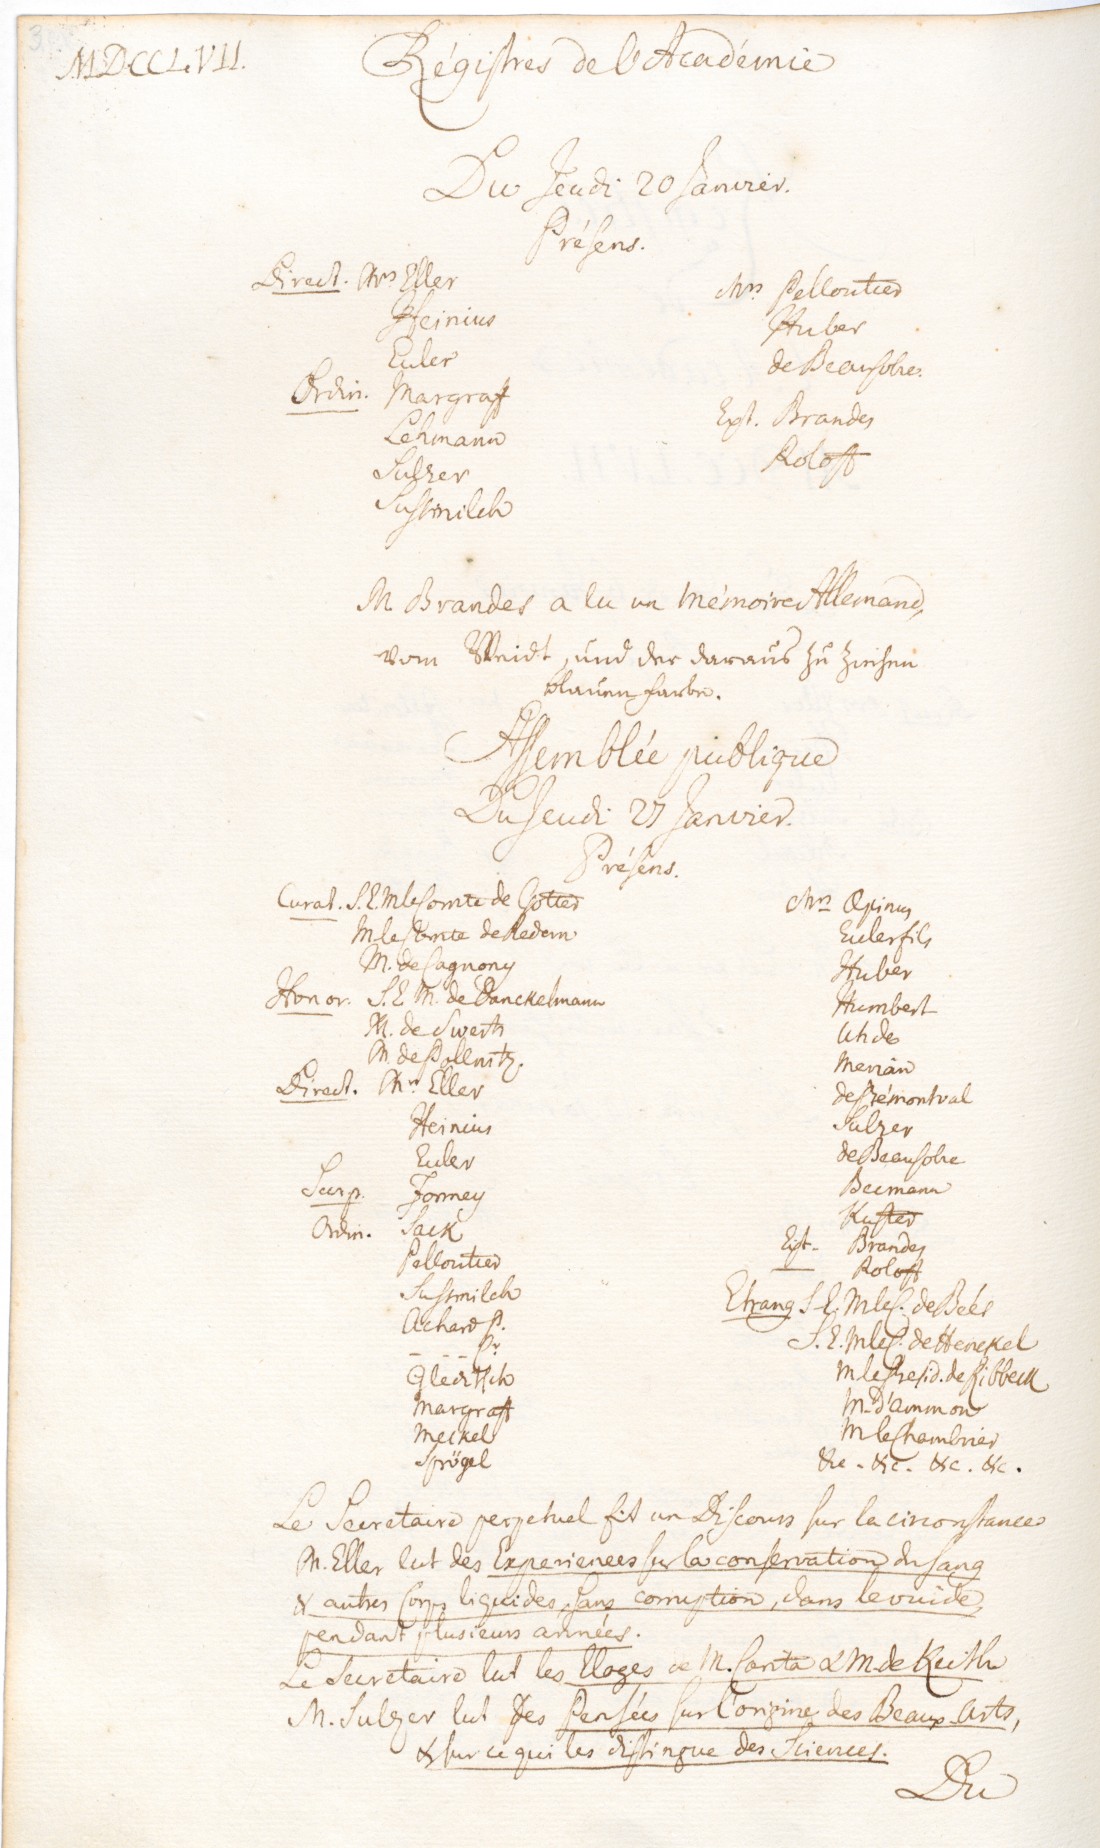 MDCCLVII.
Régistres de l'Académie
Du Jeudi 20 Janvier.
Présens.
Direct. Mrs Eller
Heinius
Euler
Ordin. Margraff
Lehmann
Sulzer
Sussmilch
Mrs Pelloutier
Huber
de Beausobre.
Ext. Brandes
Roloff
M Brandes a lu un Mémoire Allemand,
vom Weidt, und der daraus zu ziehen
blauen farbe.
Assemblée publique
Du Jeudi 27 Janvier.
Présens.
Curat. S. E. M le Comte de Gotter
M le Comte de Redern
M. de Cagnony
Honor. S. E. M. de Danckelmann
M. de Swerts
M. de Pöllnitz.
Direct. Mrs Eller
Heinius
Euler
Secr. p. Formey
Ordin. Sack
Pelloutier
Sussmilch
Achard P.
- - - Fr.
Gleditsch
Margraff
Meckel
Sprögel
Mrs Æpinus
Euler fils
Huber
Humbert
Uhde
Merian
de Prémontval
Sulzer
de Beausobre
Becmann
Kuster
Ext. Brandes
Roloff
Etrang S. E. M le C. de Beés
S. E. M le C. de Henckel
M le Presid. de Ribbeck
M. d'Ammon
M le Chambrier
&c. &c. &c. &c.
Le Secretaire perpetuel fit un Discours sur la circonstance
M. Eller lut des Experiences sur la conservation du sang
& autres Corps liquides, sans corruption, dans le vuide,
pendant plusieurs années.
Le Secretaire lut les Eloges de M. Carita & M. de Keith
M. Sulzer lut des Pensées sur l'origine des Beaux Arts,
& sur ce qui les distingue des Sciences.
Du